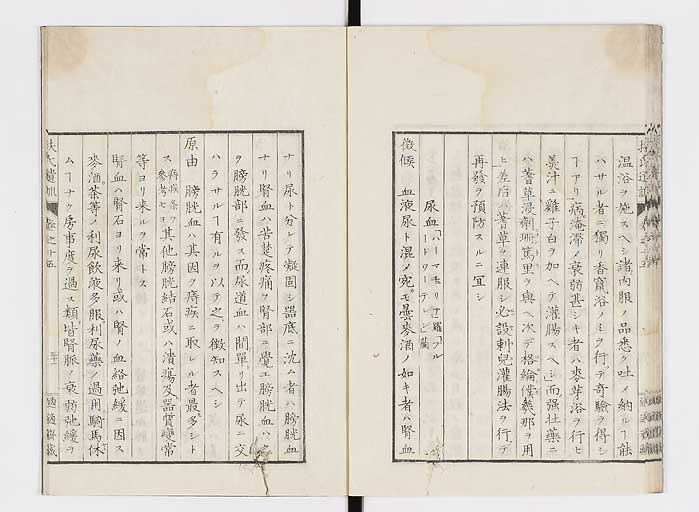 温浴ヲ施スヘシ諸内服ノ品悉ク吐メ納ルヿ能
ハサル者ニ獨リ香竄浴ノミヲ行テ奇驗ヲ得シ
ヿアリ病淹滞ノ衰弱甚シキ者ハ麥芽浴ヲ行ヒ
羹汁ニ雞子白ヲ加ヘテ灌腸スヘシ而强壮藥ニ
ハ蓍草浸劑珊篤里ヲ與ヘ次テ格綸僕
ヲ用
ヒ差后ハ蓍草ヲ連服シ必設剌兒灌腸法ヲ行テ
再發ヲ預防スルニ冝シ
尿血
徴候 血液尿ト混メ宛モ曇麥酒ノ如キ者ハ腎血
ナリ尿ト分レテ凝固シ器底ニ沈ム者ハ膀胱血
ナリ腎血ハ苦楚疼痛ヲ腎部ニ覺エ膀胱血ハ之
ヲ膀胱部ニ發ス而尿道血ハ間單リ出テ尿ニ交
ハラサルヿ有ルヲ以テ之ヲ徴知スヘシ
原由 膀胱血ハ其因ヲ痔疾ニ取レル者最多シト
ス痔疾条ヲ參考セヨ其他膀胱結石或ハ潰瘍及器質變常
等ヨリ来ルヲ常トス
腎血ハ腎石ヨリ来リ或ハ腎ノ血絡弛緩ニ因ス
麥酒茶等ノ利尿飲液多服利尿藥ノ過用騎馬休
ムヿナク房事度ヲ過ス類皆腎脈ノ衰弱弛緩ヲ
扶氏遺訓
卷之十五
適適齋藏